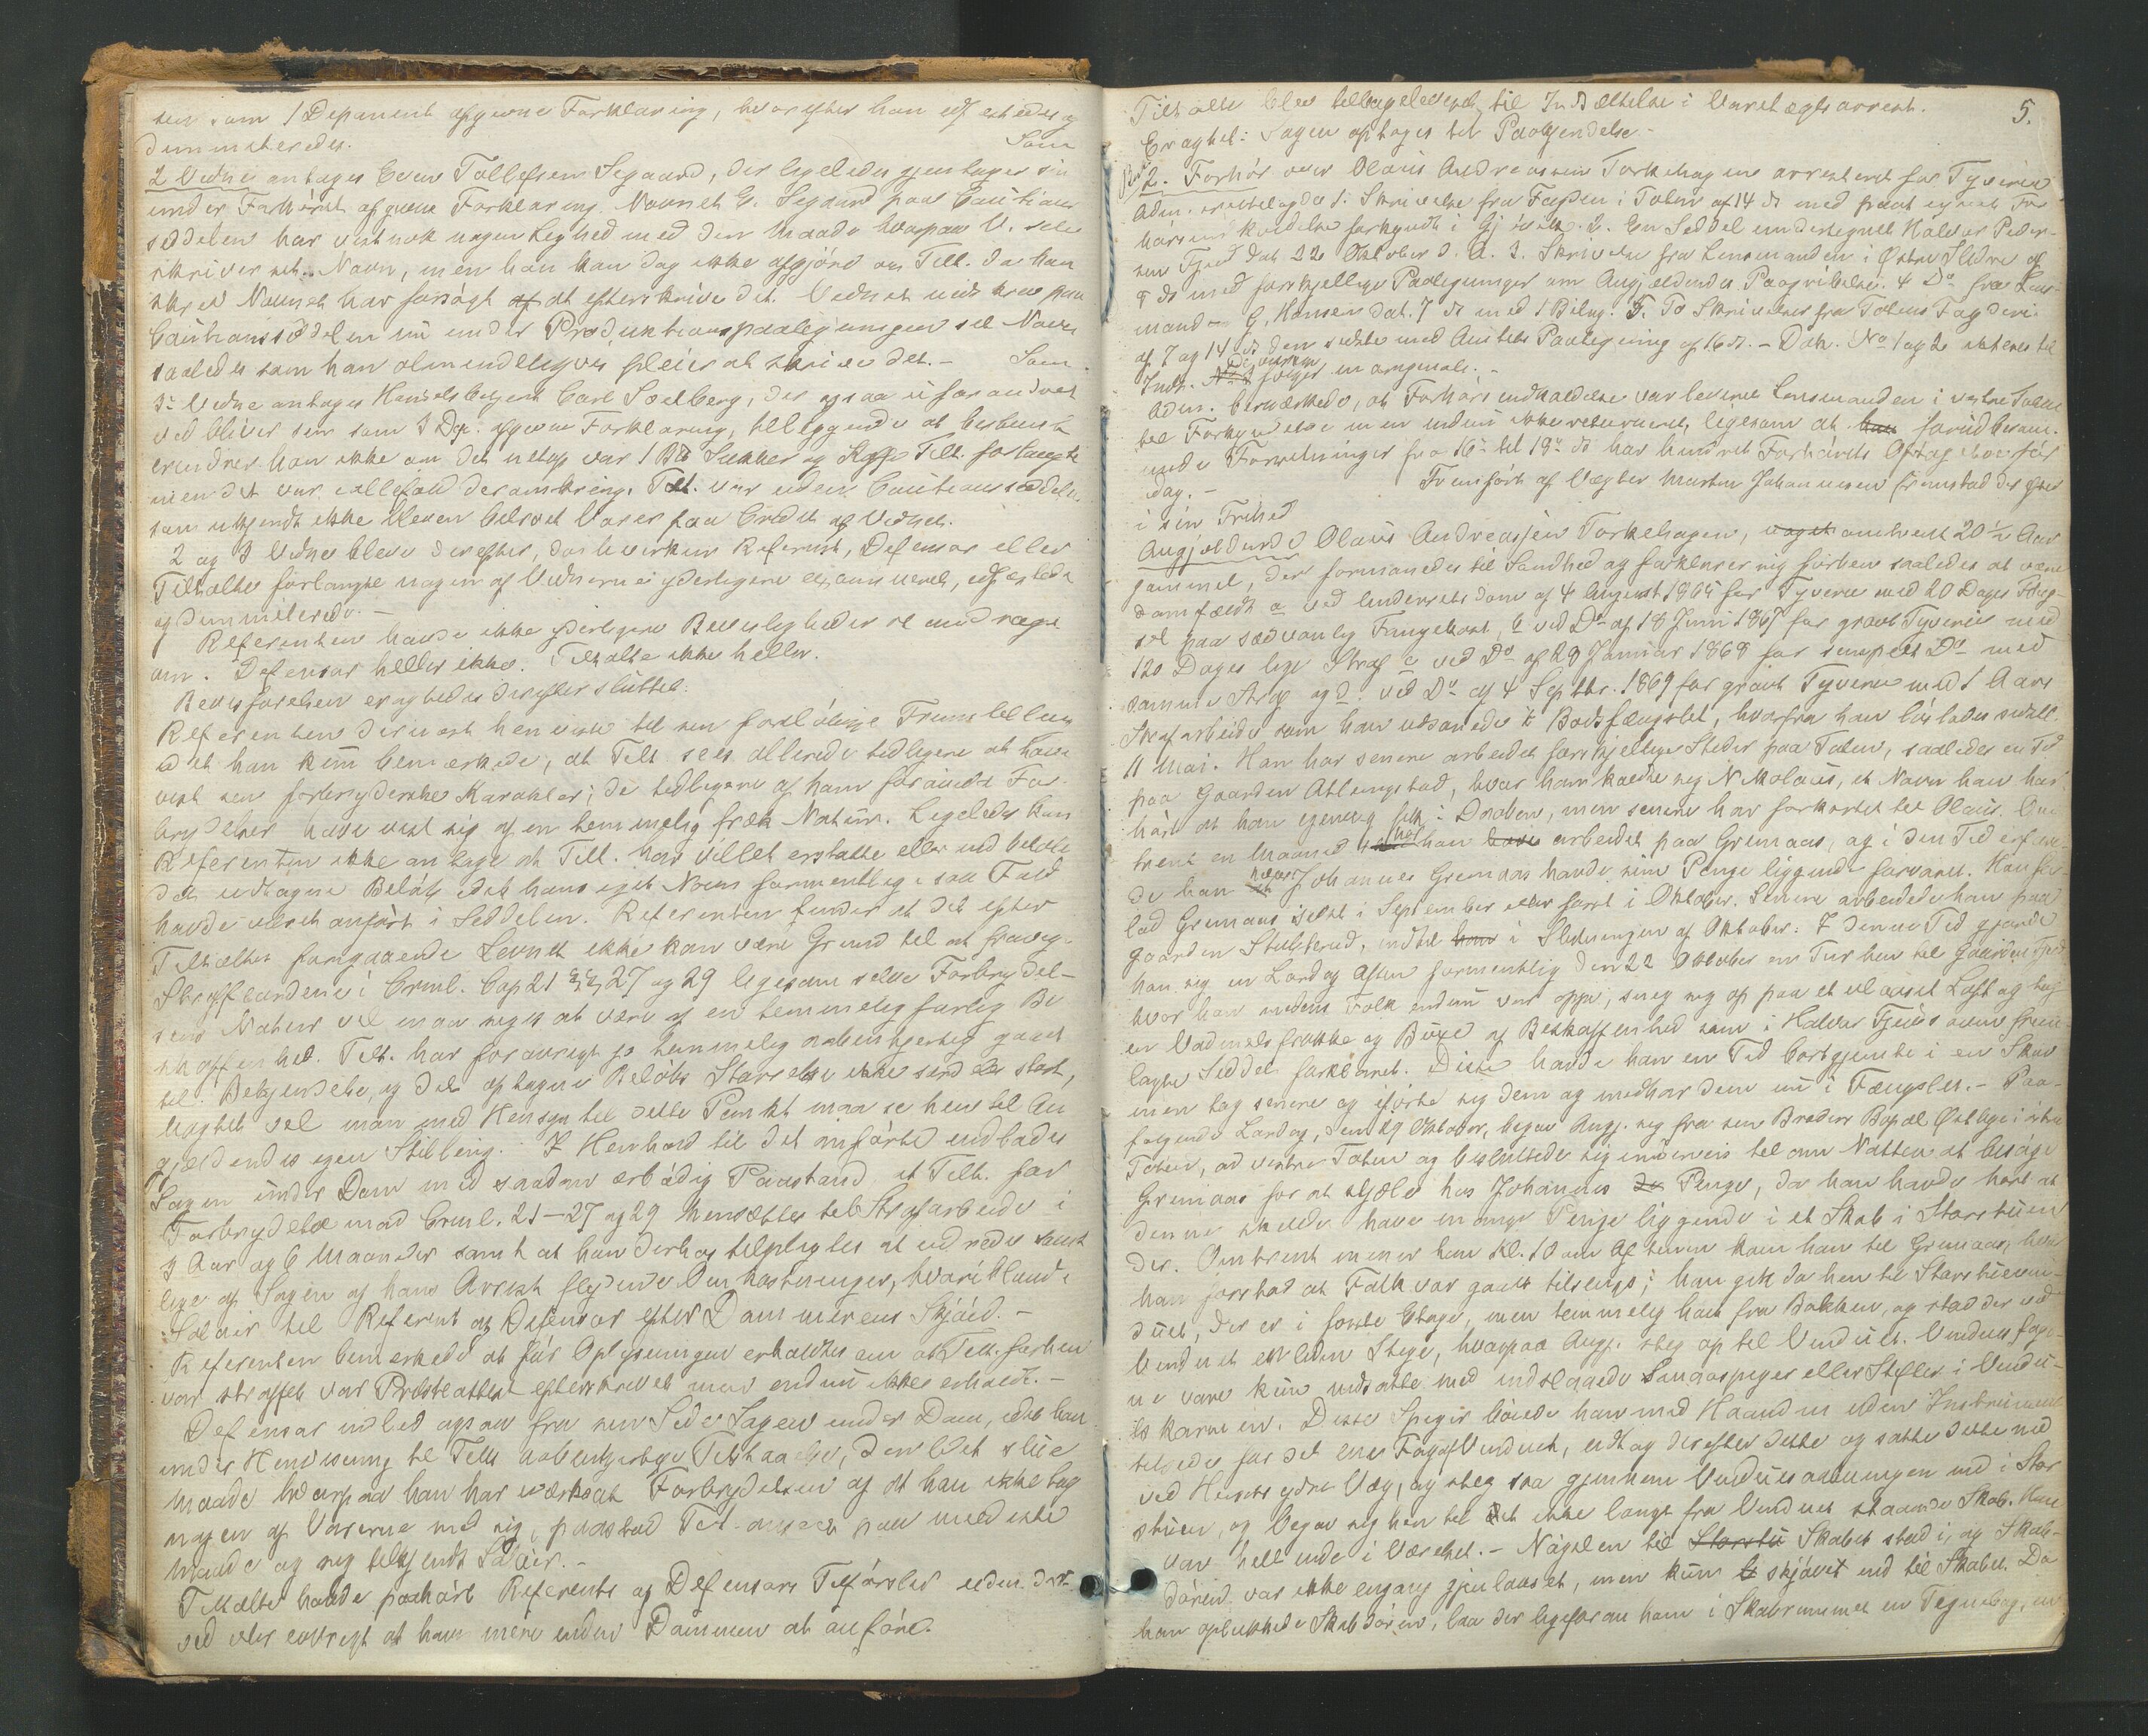 sin som 1 Deponent afgivne Forklaring, hvorefter han edfæstedes og
dimmiteredes. Som
2 Vidne antages Even Tollefsen Segaard, der ligeledes gjentager sin
under Forhöret afgivne Forklaring. Navnet E. Segaard paa Cautions
seddelen har vistnok nogen Lighed med den Maade hvorpaa V. selv
skriver sit Navn, men han kan dog ikke afgjöre om Tilt. da han
skrev Navnet har forsögt at efterskrive det. Vidnet undskrev paa
Cautionsseddelen nu under Produktionspaategningen sit Navn
saaledes som han almindeligvis pleier at skrive det. – Som
3die Vidne antages Handelsbetjent Carl Soelberg, der ogsaa uforandret
vedbliver sin som 3 Dep. afgivne Forklaring, tilleggende at bestemt
erindrer han ikke om det netop var 1 B℔ Sukker og Kaffe Tilt. forlangte
men det var ialfald deromkring. Tilt. var uden Cautionsseddelen
som ukjendt ikke bleven betroet Varer paa Credit af Vidnet.
2 og 3 Vidne bleve derefter, da hverken Referent, Defensor eller
Tiltalte forlangte nogen af Vidnerne yderligere examineret, edfæstede
og dimmiterede. –
Referenten havde ikke yderligere Bevisligheder at medrage
om. Defensor heller ikke. Tiltalte ikke heller.
Bevisförelsen eragtedes derefter sluttet.
Referenten dernæst henviste til sin forelöbige Fremstilling
idet han kun bemærkede, at Tilt. sees allerede tidligere at have
vist sin forbryderske Karakter; de tidligere af ham forövede For-
brydelser have vist sig af en temmelig fræk Natur. Ligeledes kan
Referenten ikke antage at Tilt. har villet erstatte eller ud betale
det udtagne Belöb idet hans eget Navn formentlig i saa Fald
havde været anfört i Seddelen. Referenten finder at det efter
Tiltaltes foregaaende Levnet ikke kan være Grund til at fravige
Straffebudene i Crml. Cap 21 §§ 27 og 29 ligesom selve Forbrydel-
sens Natur vel maa siges at være af en temmelig farlig Be
skaffenhed. Tilt. har forövrigt jo temmelig aabenhjertig gaaet
til Bekjendelse, og det optagne Belöbs Størrelse ikke sind stort,
hvorhos vel man med Hensyn til dette Punkt maa se hen til An
gjældendes egen Stilling. I Henhold til det anförte indlades
Sagen under Dom med saadan ærbödig Paastand at Tilt. for
Forbrydelse mod Crml. 21 – 27 og 29 hensættes til Strafarbeide i
3 Aar og 6 Maaneder samt at han derhos tilpligtes at udrede samt
lige af Sagen og hans Arrest flydende Omkostninger, hvoriblandt
Salair til Referent og Defensor efter Dommerens Skjön. –
Referenten bemerkede at för Oplysningen erholdtes om at Tilt. forhen
var straffet var Præsteattest efterskrevet men endnu ikke erholdt. –
Defensor indlod ogsaa fra sin Side Sagen under Dom, idet han
under Henvisning til Tilts aabenhjertige Tilstaaelse, den lidt slue
Maade hvorpaa han har iværksat Forbrydelsen og at han ikke tog
nogen af Varerne med sig, paastod Tilt. anseet paa mildeste
Maade og sig tilkjendt Salair. –
Tiltalte havde paahört Referents og Defensors Tilförsler uden der-
ved eller iövrigt at have mere inden Dommen at anföre.
5.
Tiltalte blev tilbageleveret til Indsættelse i Varetægtsarrest.
Eragtet: Sagen optages til Paakjendelse. –
2. Forhör over Olaus Andreassen Torkehagen arresteret for Tyverier
Adm. fremlagde 1. Skrivelse fra Fogden i Toten af 14 ds med paategnet For
hörsindkaldelse forkyndt i Gjövik. 2. En Seddel undertegnet Halvor Peder-
sen Fjeld dat 22 Oktober d. A. 3. Skrivelse fra Lensmanden i Østre Slidre af
9 ds med forskjellige Paategninger om Angjældendes Paagribelse. 4 Do fra Lens-
mand G. Hansen dat. 7 ds med 1 Bilag. 5. To Skrivelser fra Totens Fogderi
af 7 og 14 ds den sidste med Amtets Paategning af 16 ds. – Dok. No 1 og 2 akteres til
Inds. De övrige fölger in originale. –
Adm. bemærkede, at Forhörsindkaldelse var leveret Lensmanden i vestre Toten
til Forkyndelse men endnu ikke returneret, ligesom at forudberam-
mede Forretninger fra 16de til 19de ds har hindret Forhörets Optag före för
idag. – Fremfört af Vægter Martin Johannesen Grimstad der efter
i sin Frihed
Angjældende Olaus Andreassen Torkehagen, omtrent 20 ½ Aar
gammel, der formanedes til Sandhed og forklarer sig forhen saaledes at være
domfældt a ved Underretsdom af 4 August 1865 for Tyveri med 20 Dages Fæng-
sel paa sædvanlig Fangekost, b ved Do af 18 Juni 1867 for grovt Tyveri med
120 Dages lige Straf c ved Do af 28 Januar 1868 for simpelt Do med
samme Straf og d: ved Do af 4 Septbr. 1869 for grovt Tyveri med 1 Aars
Strafarbeide som han udsonede i Bodsfængslet, hvorfra han löslodes sidstl.
11 Mai. Han har senere arbeidet forskjellige Steder paa Toten, saaledes en Tid
paa Gaarden Atlungstad, hvor han kaldte sig Nikolaus, et Navn han har
hört at han egentlig fik i Daaben, men senere har forkortet til Olaus. Om
trent en Maaned har han arbeidet paa Grimaas, og i den Tid erfare-
de han hvor Johannes Grimaas havde sine Penge liggende forvaret. Han for
lod Grimaas sidst i September eller först i Oktober. Senere arbeidede han paa
Gaarden Stubberud, indtil i Slutningen af Oktober. I denne Tid gjorde
han sig en Lördag Aften formentlig den 22 Oktober en Tur hen til Gaarden Fjeld
hvor han medens Folk endnu var oppe, sneg sig op paa et ulaaset Loft og tog
en Vadmelsfrakke og Buxe af Beskaffenhed som i Halvor Fjelds ovenfrem
lagte Seddel forklaret. Disse havde han en Tid bortgjemte i en Skov
men tog senere og iförte sig dem og medhar dem nu i Fængslet. – Paa-
fölgende Lördag, den 29 Oktober, begav Angj. sig fra sin Broders Bopæl Østlige i östre
Toten, ad vestre Toten og besluttede sig underveis til om Natten at besöge
Grimaas for at stjæle hos Johannes Penge, da han havde hört at
denne skulde have mange Penge liggende i et Skab i Storstuen
der. Omtrent mener han Kl. 10 om Aftenen kom han til Grimaas, hvor
han forstod at Folk var gaaet tilsengs; han gik da hen til Storstuevin-
duet, der er i förste Etage, men temmelig höit fra Bakken, og stod der ved
Vinduet en liden Stige, hvorpaa Angj. steg op til Vinduet. Vinduesfage-
ne vare kun indsatte med indslagede Smaaspiger eller Stifter i Vindu-
eskarmen. Disse Spiger böiede han med Haanden uden Instrument
tilside for det ene Fag af Vinduet, udtog derefter dette og satte dette ned
ved Husets ydre Væg, og steg saa gjennem Vinduesaabningen ind i Stor
stuen, og begav sig hen til det ikke langt fra Vinduet staaende Skab. Han
var helt inde i Værelset. – Nöglen til Skabet stod i, og Skab-
dören var ikke engang gjenlaaset, men kun skjövet ind til Skabet. Da
han oplukkede Skabdören, laa der ligeforan ham i Skabrummet en Tegnebog, en